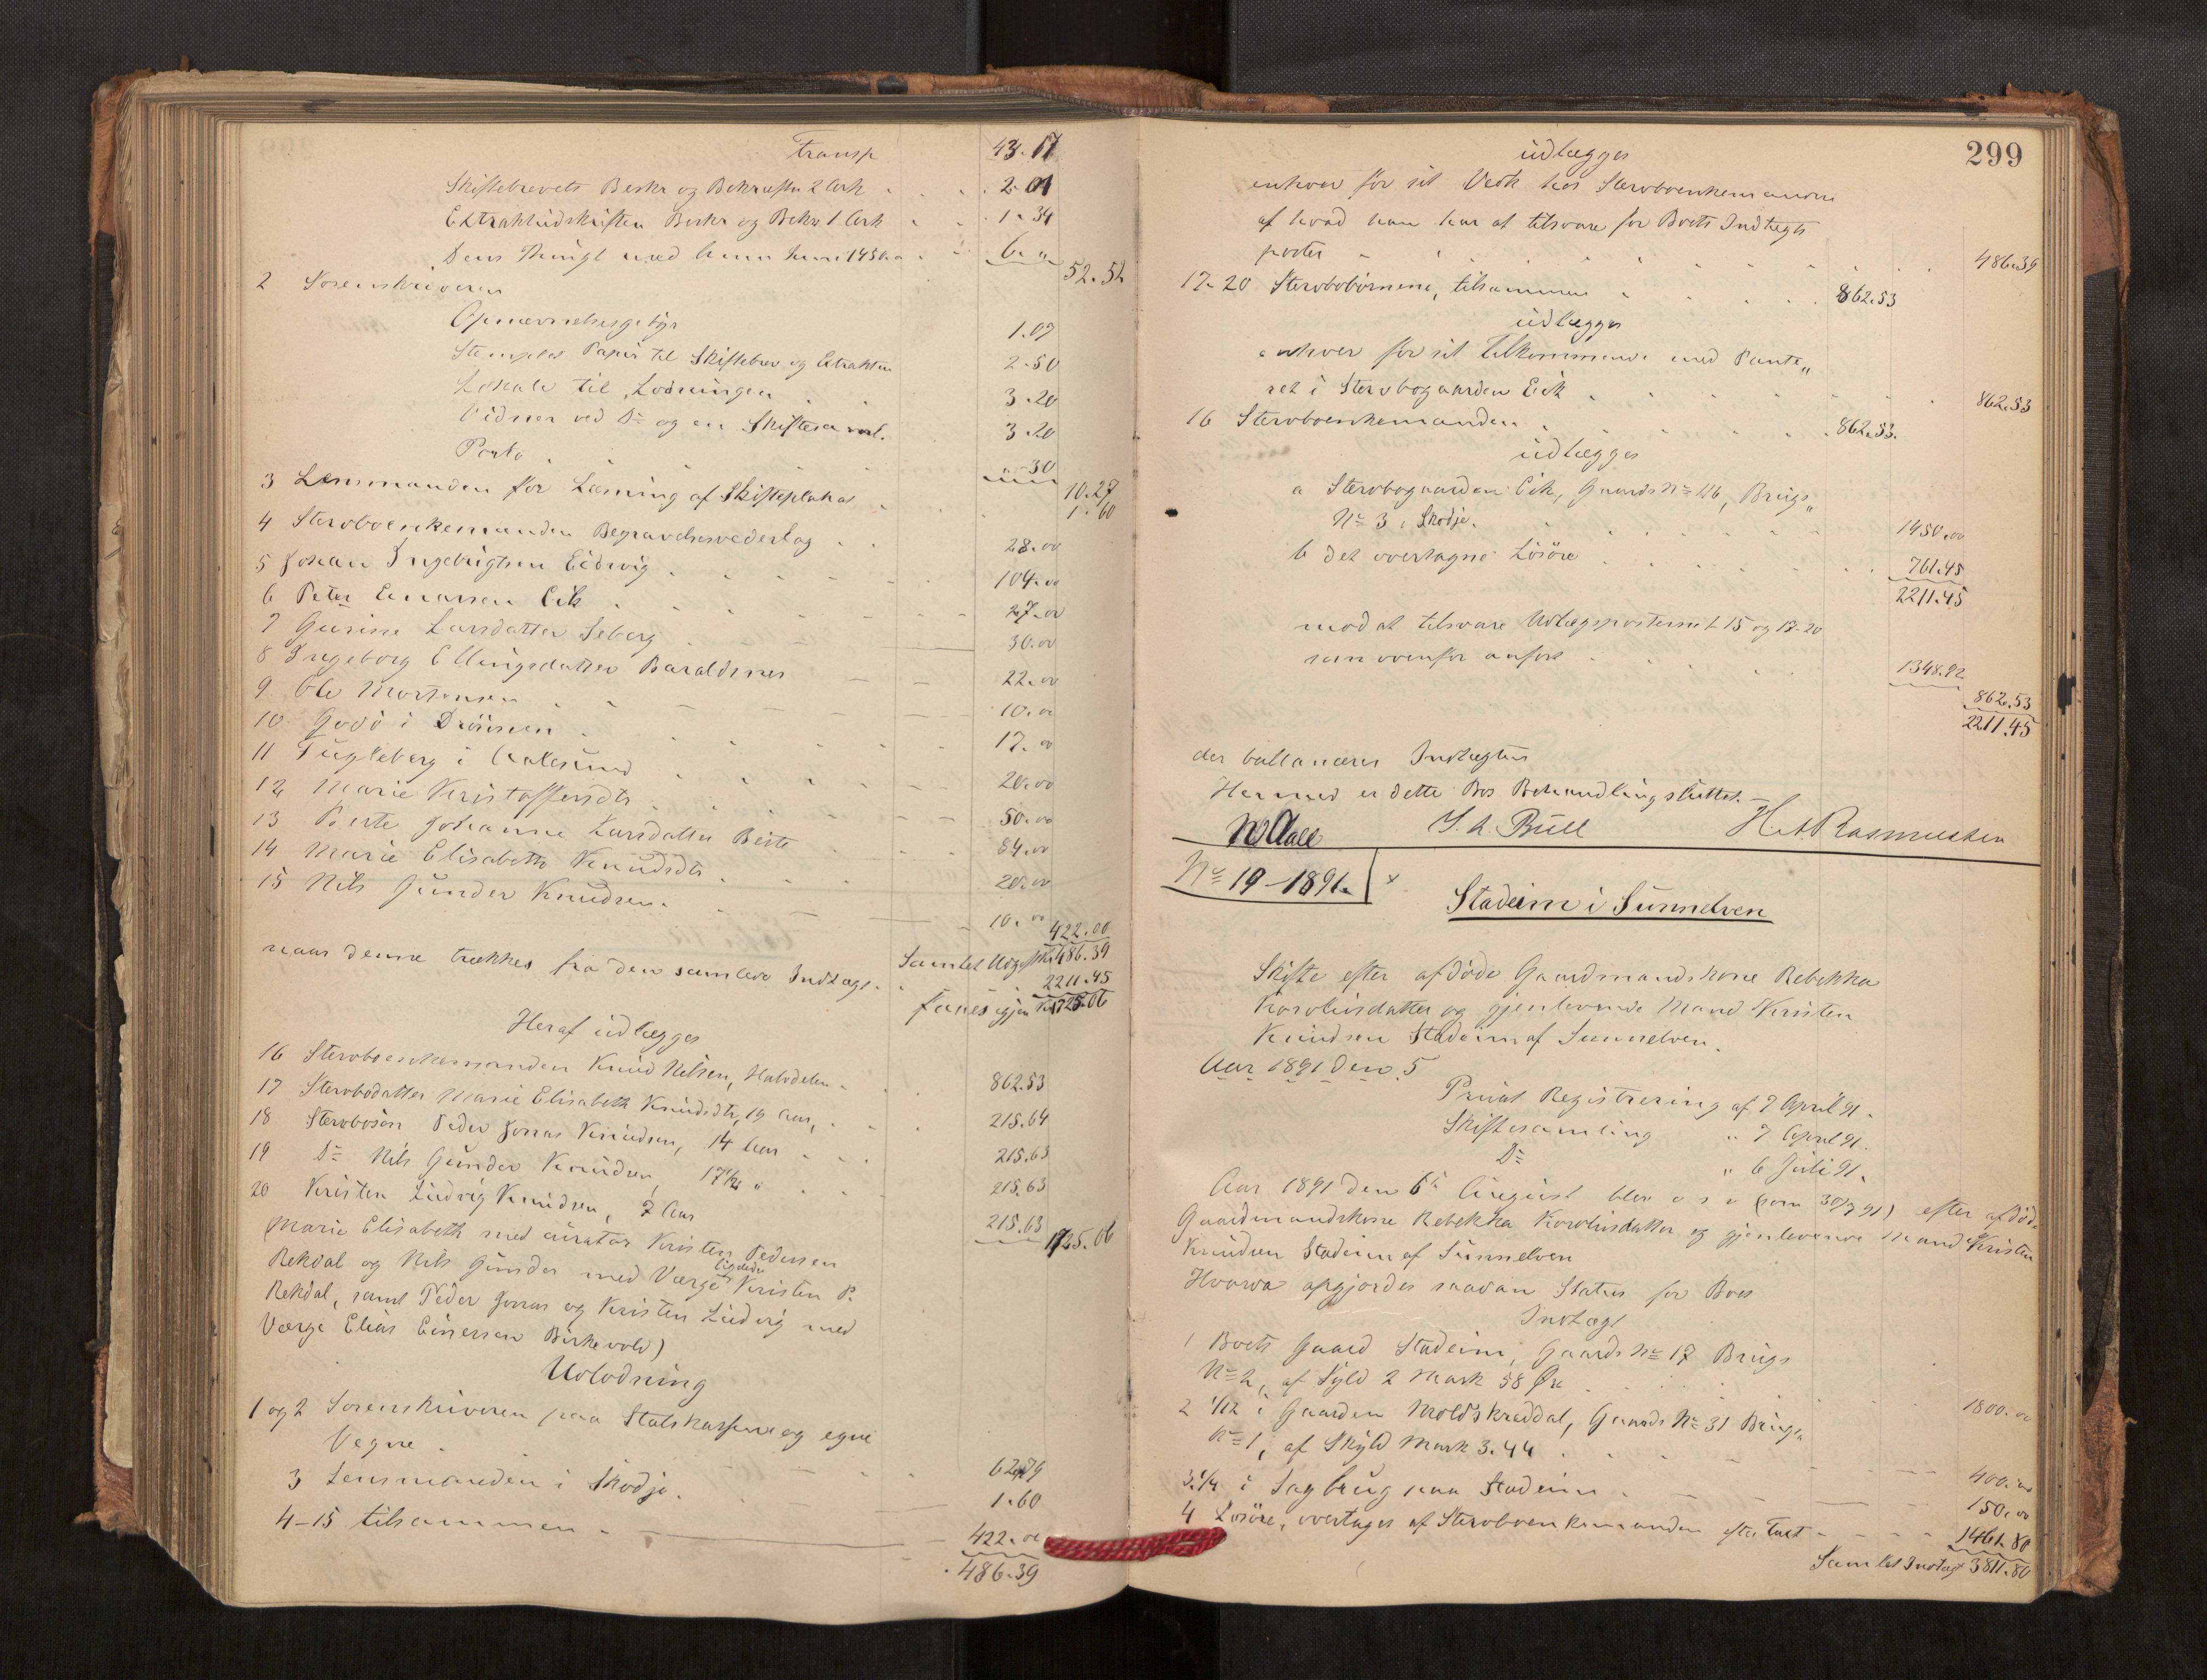 Transp 43.17
Skiftebrevets Beskr og Bekræftn 2 Ark 2.01
Extraktudskriften Beskr og Bekr 1 Ark 1.34
Dens Thingl med 6.„
52.52
2 Sorenskriveren
Opnævnelsesgebyr 1.07
Stemplet Papir til Skiftebrev og Extrakten 2.50
Lokale til Lodningen 3.20
Vidner ved Do og en Skiftesaml. 3.20
Porto „.30
10.27
3 Lensmanden for Læsning af Skifteplakat 1.60
4 Stervboenkemanden Begravelsesvederlag 28.00
5 Johan Ingebrigtsen Eidsvig 104.00
6 Peter Einarsen Eik 27.00
7 Gurine Larsdatter Seberg 30.00
8 Ingeborg Ellingsdatter Baraldsnes 22.00
9 Ole Mortensen 10.00
10 Godø i Drønnen 17.00
11 Fugleberg i Aalesund 20.00
12 Marie Kristoffersdtr 50.00
13 Berte Johanne Larsdatter Beite 84.00
14 Marie Elisabeth Knudsdtr 20.00
15 Nils Gunder Knudsen. 10.00
422.00
Samlet Udgift Kr. 486.39
naar denne trækkes fra den samlede Indtægt 2211.45
faaes igjen Kr. 1725.06
Heraf udlægges
16 Stervboenkemanden Knud Nilsen, Halvdelen 862.53
17 Stervbodatter Marie Elisabeth Knudsdtr, 19 Aar, 215.64
18 Stervbosøn Peder Jonas Knudsen, 14 Aar 215.63
19 Do Nils Gunder Knudsen, 17 1/2 „ 215.63
20 Kristen Ludvig Knudsen, 7 Aar 215.63
1725.06
(Marie Elisabeth med curator Kristen Pedersen
Rekdal og Nils Gunder med Værge ligeledes Kristen P.
Rekdal, samt Peder Jonas og Kristen Ludvig med
Værge Elias Einersen Birkevold)
Udlodning
1 og 2 Sorenskriveren paa Statskassens og egne
Vegne 62.79
3 Lensmanden i Skodje. 1.60
4–15 tilsammen 422.00
486.39
299
udlægges
enhver for sit Vedk hos Stervboenkemanden
af hvad han har at tilsvare for Boets Indtægts
poster 486.39
17–20 Stervbobørnene, tilsammen 862.53
udlægges
enhver for sit Tilkommende med Pante„
ret i Stervbogaarden Eik 862.53
16 Stervboenkemanden 862.53.
udlægges
a Stervbogaarden Eik, Gaards No 116, Brugs„
No 3 i Skodje. 1450.00
b det overtagne Løsøre 761.45
2211.45
mod at tilsvare Udlægsposterne 1–15 og 17–20
som ovenfor anført 1348.92
862.53
2211.45
der ballancerer Indtægten
Hermed er dette Bos Behandling sluttet. –
N Aall S. A. Bull H. A. Rasmussen
No 19–1891.
Stadeim i Sunnelven
Skifte efter afdøde Gaardmandskone Rebekka
Karolusdatter og gjenlevende Mand Kristen
Knudsen Stadeim af Sunnelven.
Aar 1891 den 5
Privat Registrering af 7 April 91.
Skiftesamling „ 7 April 91.
Do „ 6 Juli 91.
Aar 1891 den 6te August blev o s v (som 30/7 91) efter afdøde
Gaardmandskone Rebekka Karolusdatter og gjenlevende Mand Kristen
Knudsen Stadeim af Sunnelven
Hvorved opgjordes saadan Status for Boet
Indtægt
1 Boets Gaard Stadeim, Gaards No 17 Brugs
No 2, af Skyld 2 Mark 58 Øre 1800.00
2 1/12 i Gaarden Moldskreddal, Gaards No 31 Brugs„
No 1, af Skyld Mark 3.44 400.00
3. 1/4 i Sagbrug paa Stadeim 150.00
4 Løsøre, overtages af Stervboenkemanden efter Taxt 1461.80
Samlet Indtægt 3811.80